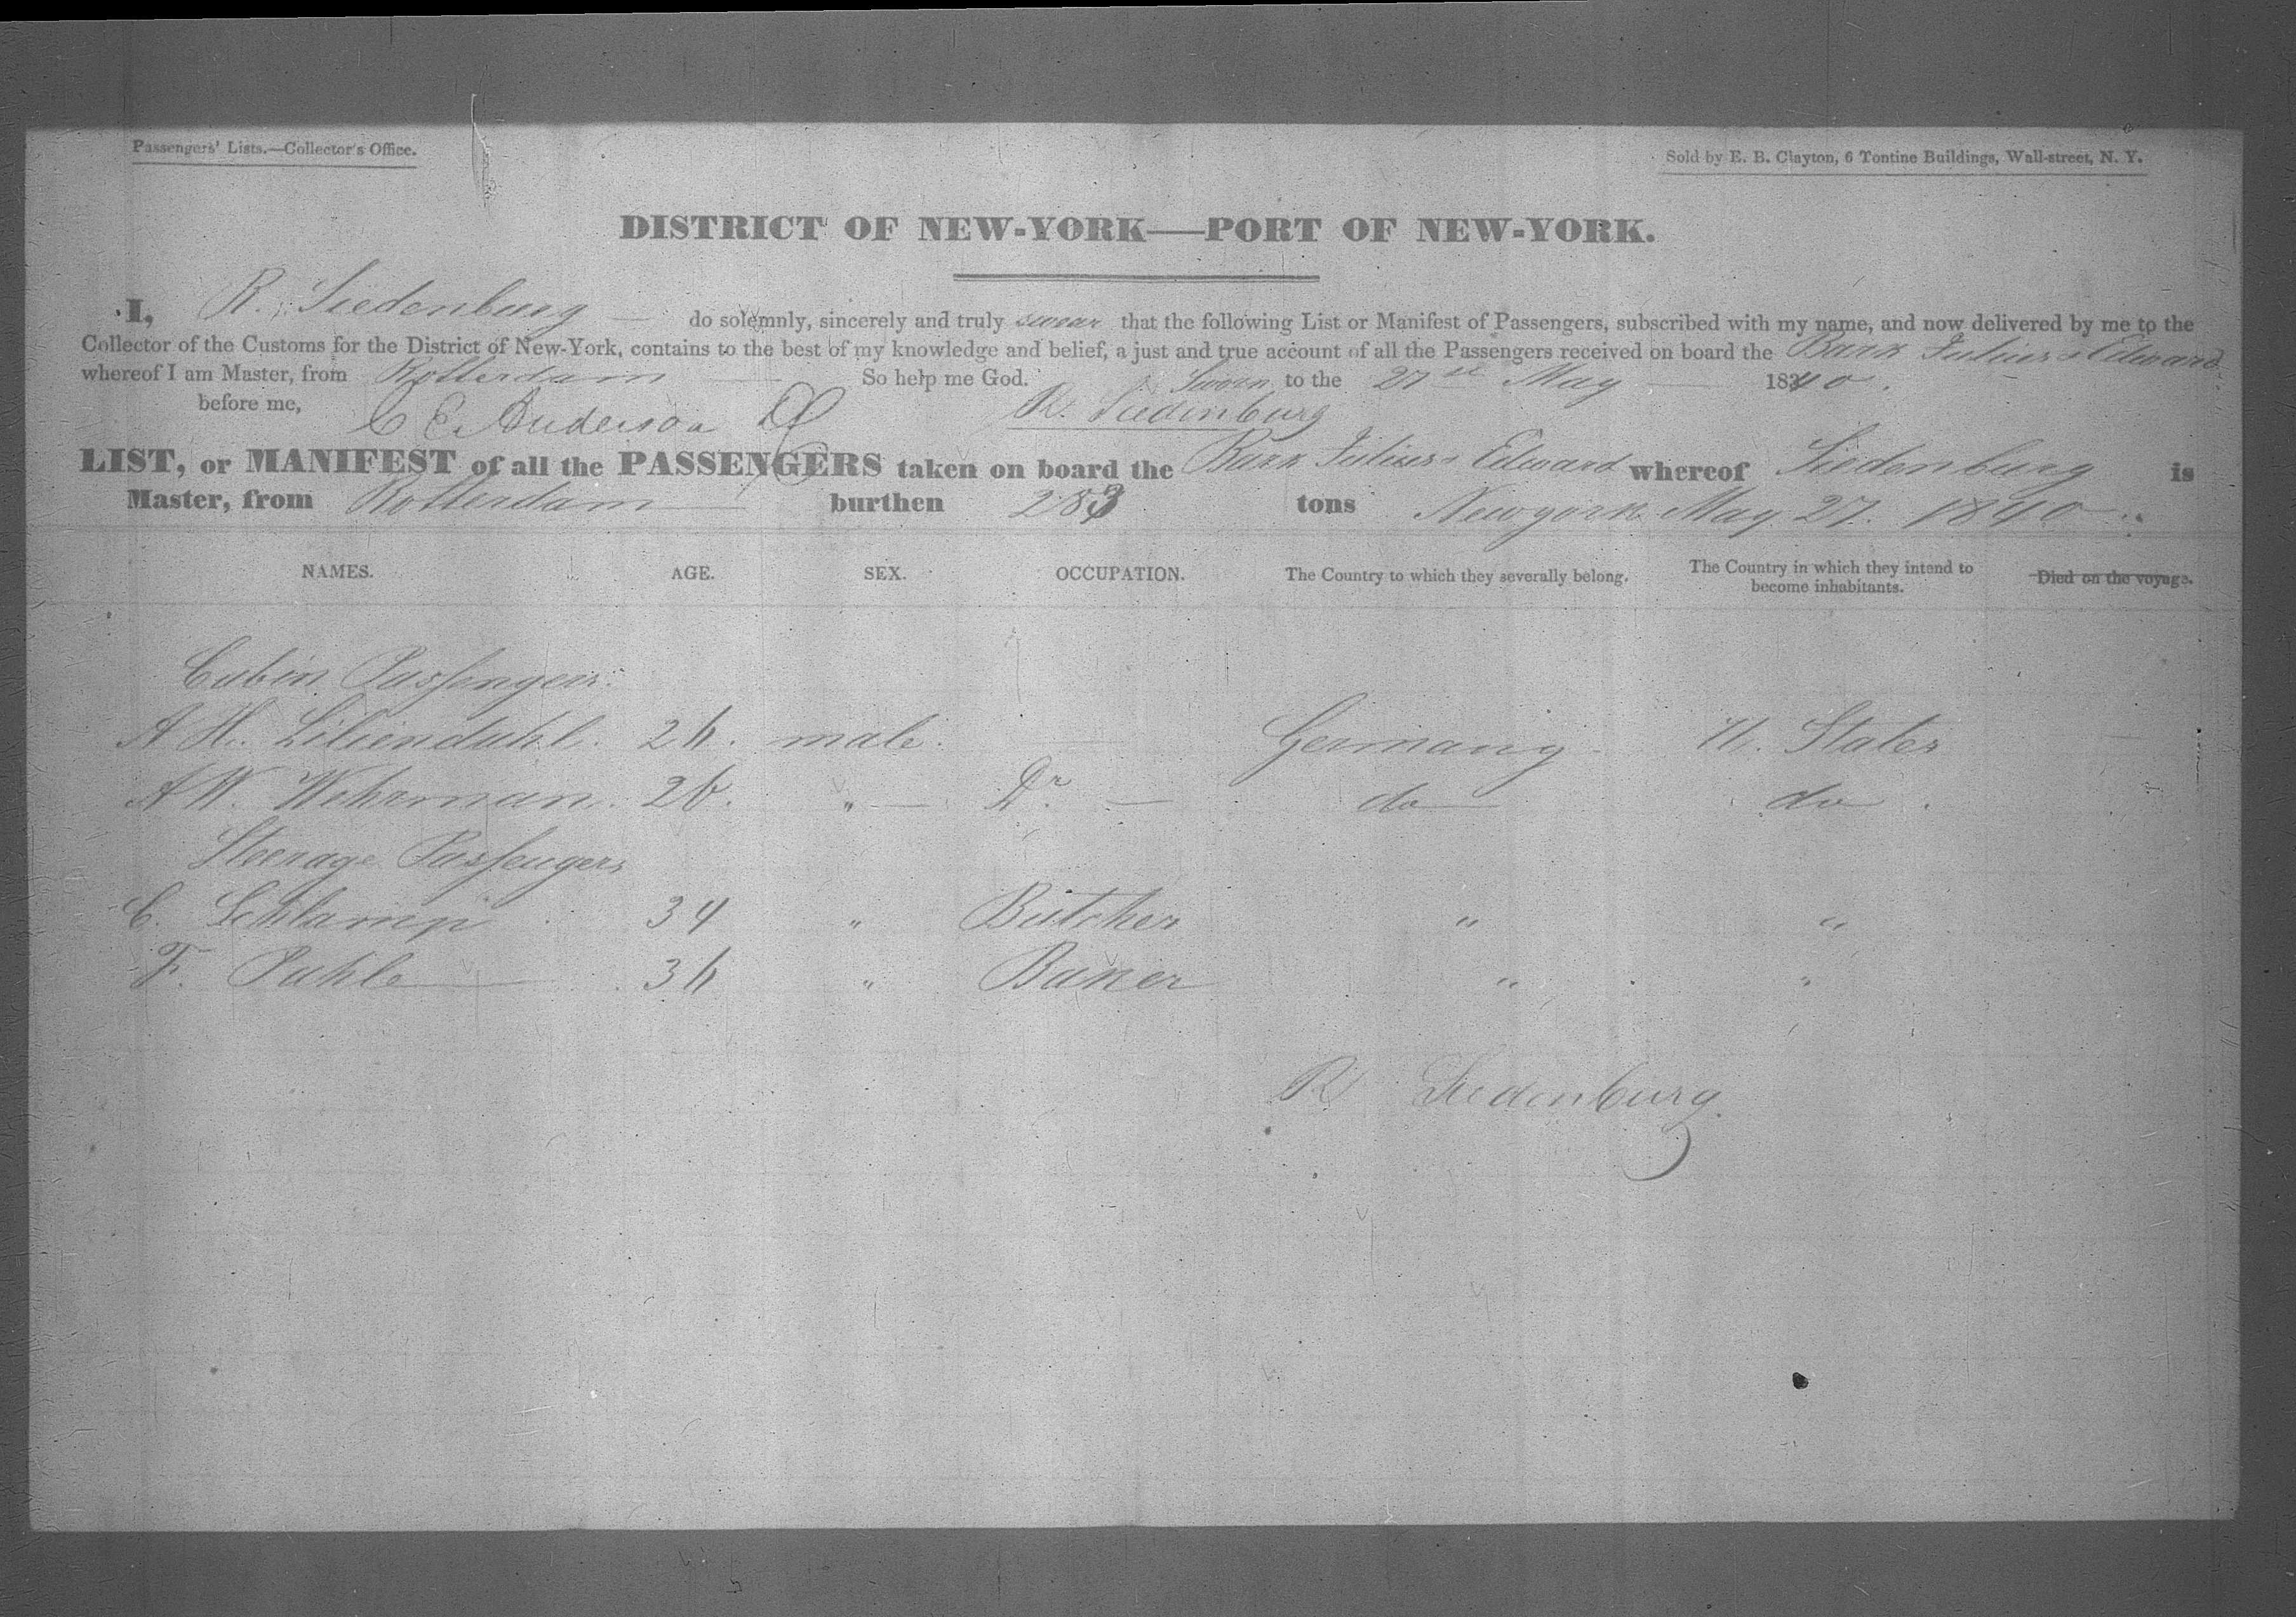 Passengers' Lists.—Collector's Office.
Sold by E. B. Clayton, 6 Tontine Buildings, Wall-street, N. Y.
DISTRICT OF NEW-YORK—PORT OF NEW-YORK.
I, R. Siedenburg do solemnly, sincerely and truly swear that the following List or Manifest of Passengers, subscribed with my name, and now delivered by me to the
Collector of the Customs for the District of New-York, contains to the best of my knowledge and belief, a just and true account of all the Passengers received on board the Bark Julius & Edward
whereof I am Master, from Rotterdam So help me God. Sworn to the 27 May 1840.
before me, C E Anderson R. Siedenburg
LIST, or MANIFEST of all the PASSENGERS taken on board the Bark Julius & Edward whereof Siedenburg is
Master, from Rotterdam burthen 283 tons Newyork May 27. 1840
NAMES. AGE. SEX. OCCUPATION. The Country to which they severally belong. The Country in which they intend to become inhabitants. Died on the voyage.
Cabin Passengers.
A H. Liliendahl. 26. male. — Germany U. States
A W. Wehrman. 26. " — Dr — do do
Steerage Passengers
C. Schlamp 34 " Butcher " "
F. Pahle 36 " Baker " "
R Siedenburg